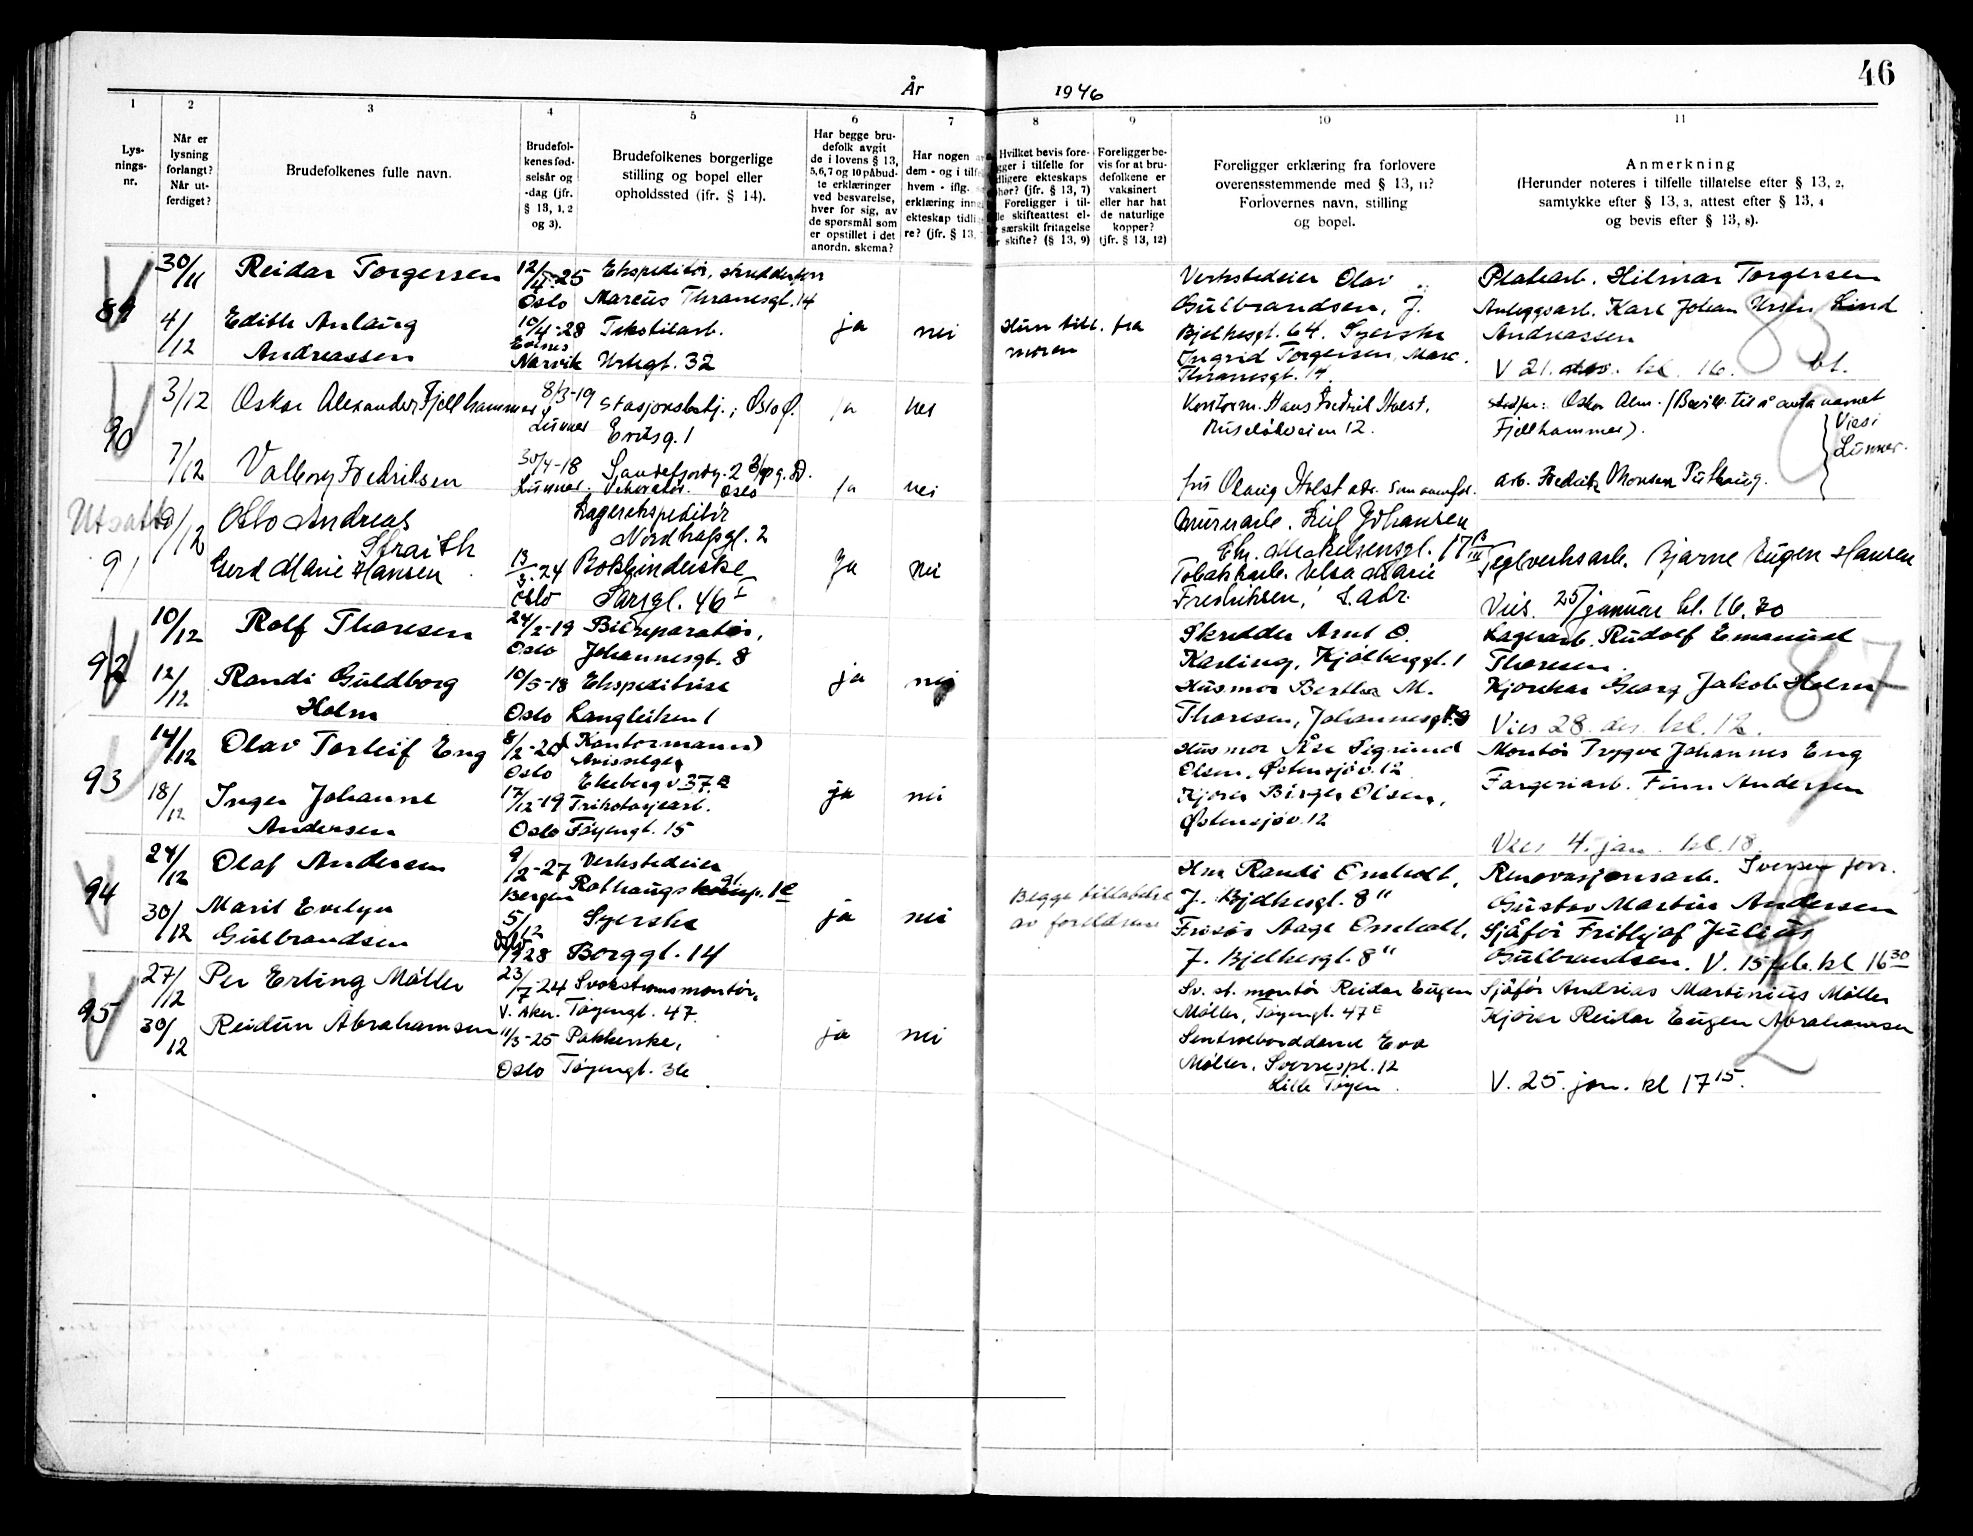 46
År 1946
1 2 3 4 5 6 7 8 9 10 11
Lys-
nings-
nr.
Når er
lysning
forlangt?
Når ut-
ferdiget?
Brudefolkenes fulle navn.
Brudefol-
kenes fød-
selsår og
-dag (jfr.
§ 13, 1, 2
og 3).
Brudefolkenes borgerlige
stilling og bopel eller
opholdssted (jfr. § 14).
Har begge bru-
defolk avgit
de i lovens § 13,
5,6,7 og 10 påbud-
te erklæringer
ved besvarelse,
hver for sig, av
de spørsmål som
er opstillet i det
anordn. skema?
Har nogen
dem - og i tilf
hvem - iflg.
erklæring inng
ekteskap tidli
re? (jfr. § 13,
Hvilket bevis fore-
gger i tilfelle for
dligere ekteskaps
phør? (jfr. § 13, 7)
Foreligger i til-
le skifteattest el-
særskilt fritagelse
skifte? (§ 13, 9)
Foreligger be-
vis for at bru-
defolkene er
vaksinert
eller har hat
de naturlige
kopper?
(jfr. § 13, 12)
Foreligger erklæring fra forlovere
overensstemmende med § 13, 11?
Forlovernes navn, stilling
og bopel.
Anmerkning
(Herunder noteres i tilfelle tillatelse efter § 13, 2,
samtykke efter § 13, 3, attest efter § 13, 4
og bevis efter § 13, 8).
89
30/11
4/12
Reidar Torgersen
Edith Anlaug
Andreassen
-25
Oslo
10/4-28
Evenes
Narvik
Ekspeditør,
Marcus Thranesgt. 14
Tekstilarb.
Urtegt. 32
ja
nei
Hun till. fra
moren
Verkstedeier Olav
Gulbrandsen, J.
Bjelkesgt. 64. Syerske
Ingrid Torgersen, Marc.
Thranesgt. 14.
Platearb. Hilmar Torgersen
Anleggsarb. Karl Johan Ursin Lind
Andreassen
V 21. des. kl. 16.
85
90
3/12
7/12
Oskar Alexander Fjellhammer
Valborg Fredriksen
8/3-19
Lunner
30/4-18
Lunner.
Stasjonsbetj.; Oslo Ø.
Eriksg. 1
Sandefjordg. 2
Oslo
ja
nei
ja
nei
Kontorm. Hans Fredrik Holst,
Ruseløkveien 12.
fru Olaug Holst adr. som ovenfor.
Oskar Alm. (Bevill. til å anta navnet
Fjellhammer).
arb. Fredrik Thorsen
Vies i
Lunner.
Utsatt
91
/12
Odd Andreas
Straith
Gerd Marie Hansen
13/3-24
Oslo
Lagerekspeditør
Nordkapgt. 2
Bokbinderske
Sarsgt. 46 I
Ja
nei
Murerarb. Leif Johansen
Chr. Michelsensgt. 17
Tobakkarb. Elsa Marie
Fredriksen, s. adr.
Teglverksarb. Bjarne Eugen Hansen
Vies. 25/januar kl. 16.30
92
10/12
12/12
Rolf Thoresen
Randi Guldborg
Holm
24/2-19
Oslo
10/5-18
Oslo
Bilreparatør,
Johannesgt. 8
Ekspeditrise
Langleiken 1
ja
nei
Skredder Arnt O.
Karling, Kjølberggt. 1
Husmor Berthe M.
Thoresen, Johannesgt. 8
Lagerarb. Rudolf Emanuel
Thoresen.
Kjørekar Georg Jakob Holm
Vies 28. des. kl. 12.
87
93
14/12
18/12
Olav Torleif Eng
Inger Johanne
Andersen
8/2-20
Oslo
17/12-19
Oslo
(Kontormann)
Avisselger
Ekeberg v. 37
Trikotasjearb.
Tøyengt. 15
ja
nei
Husmor Åse Sigrund
Olsen, Østensjøv. 12
Kjører Birger Olsen,
Østensjøv. 12
Montør Trygve Johannes Eng
Fargeriarb. Finn Andersen
Vies 4. jan. kl. 18.
94
24/12
30/12
Olaf Andersen
Marit Evelyn
Gulbrandsen
9/2-27
Bergen
5/12
Oslo
1928
Verkstedeier
Syerske
Borggt. 14
ja
nei
Begge tillatelse
av foreldrene
Hm Randi Emholt,
J. Bjelkesgt. 8"
Frisør Aage Emholt,
J. Bjelkesgt. 8"
Renovasjonsarb. Iversen forr.
Gustav Martin Andersen
Sjåfør Frithjof Julius
Gulbrandsen. V. 15 feb. kl 16 30
95
27/12
30/12
Per Erling Møller
Reidun Abrahamsen
23/7-24
V. Aker.
11/3-25
Oslo
Svakstrømsmontør,
Tøyengt. 47.
Pakkerske,
Tøyengt. 36
ja
nei
Sv. st. montør Reidar Eugen
Møller, Tøyengt. 47 E
Sentralborddame Eva
Møller, Sverrespl. 12
Lille Tøyen.
Sjåfør Andreas Martinius Møller
Kjører Reidar Eugen Abrahamsen
2
V. 25. jan. kl 17 15.